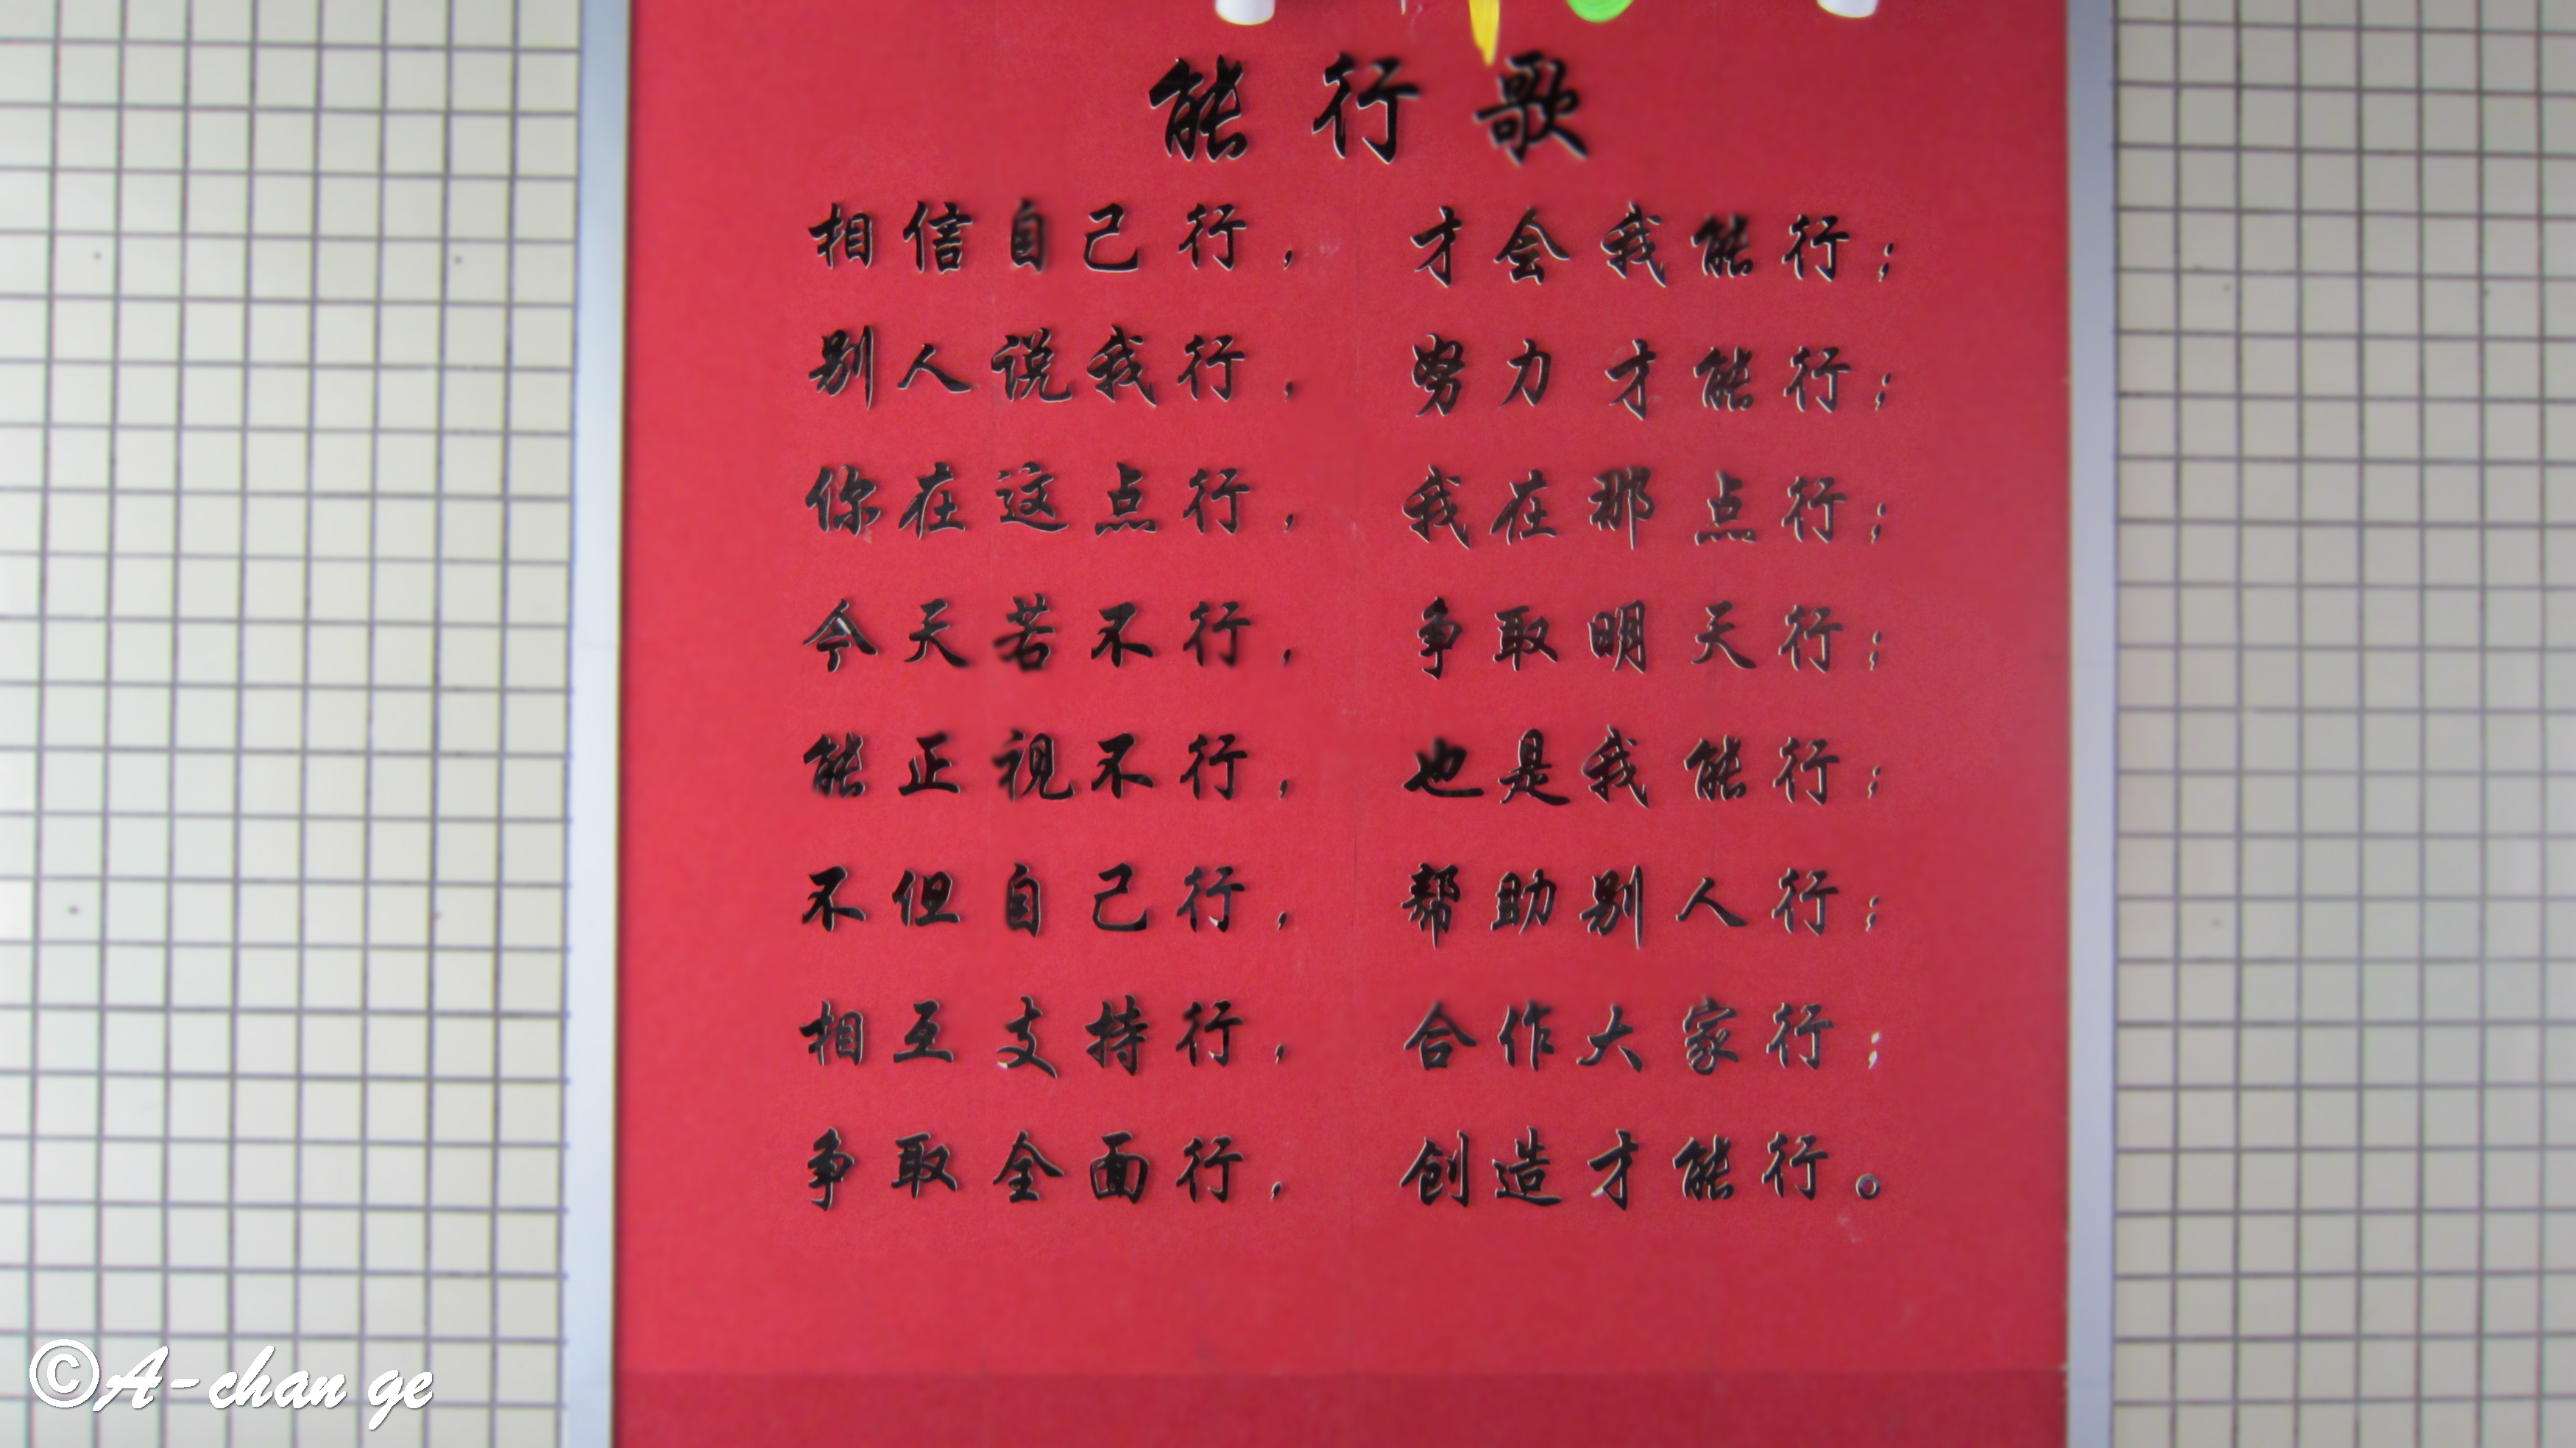 能行歌
相信自己行， 才会我能行；
别人说我行， 努力才能行；
你在这点行， 我在那点行；
今天若不行， 争取明天行；
能正视不行， 也是我能行；
不但自己行， 帮助别人行；
相互支持行， 合作大家行；
争取全面行， 创造才能行。
©A-chan ge